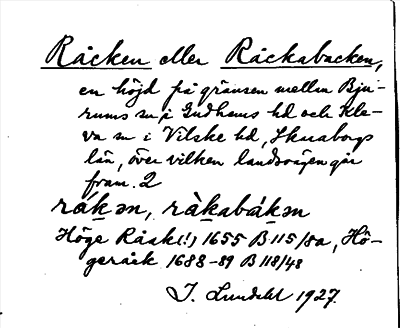 Råcken eller Råckabacken,
en höjd på gränsen mellan Bju-
rums sn i Gudhems hd och Kle-
va sn i Vilske hd, Skaraborgs
län, över vilken landsvägen går
fram. 2
råkən, ràkabákən
Höge Råak(!) 1655 B 115/8a, Hö-
geråek 1688-89 B 118/48
J. Lundahl 1927.